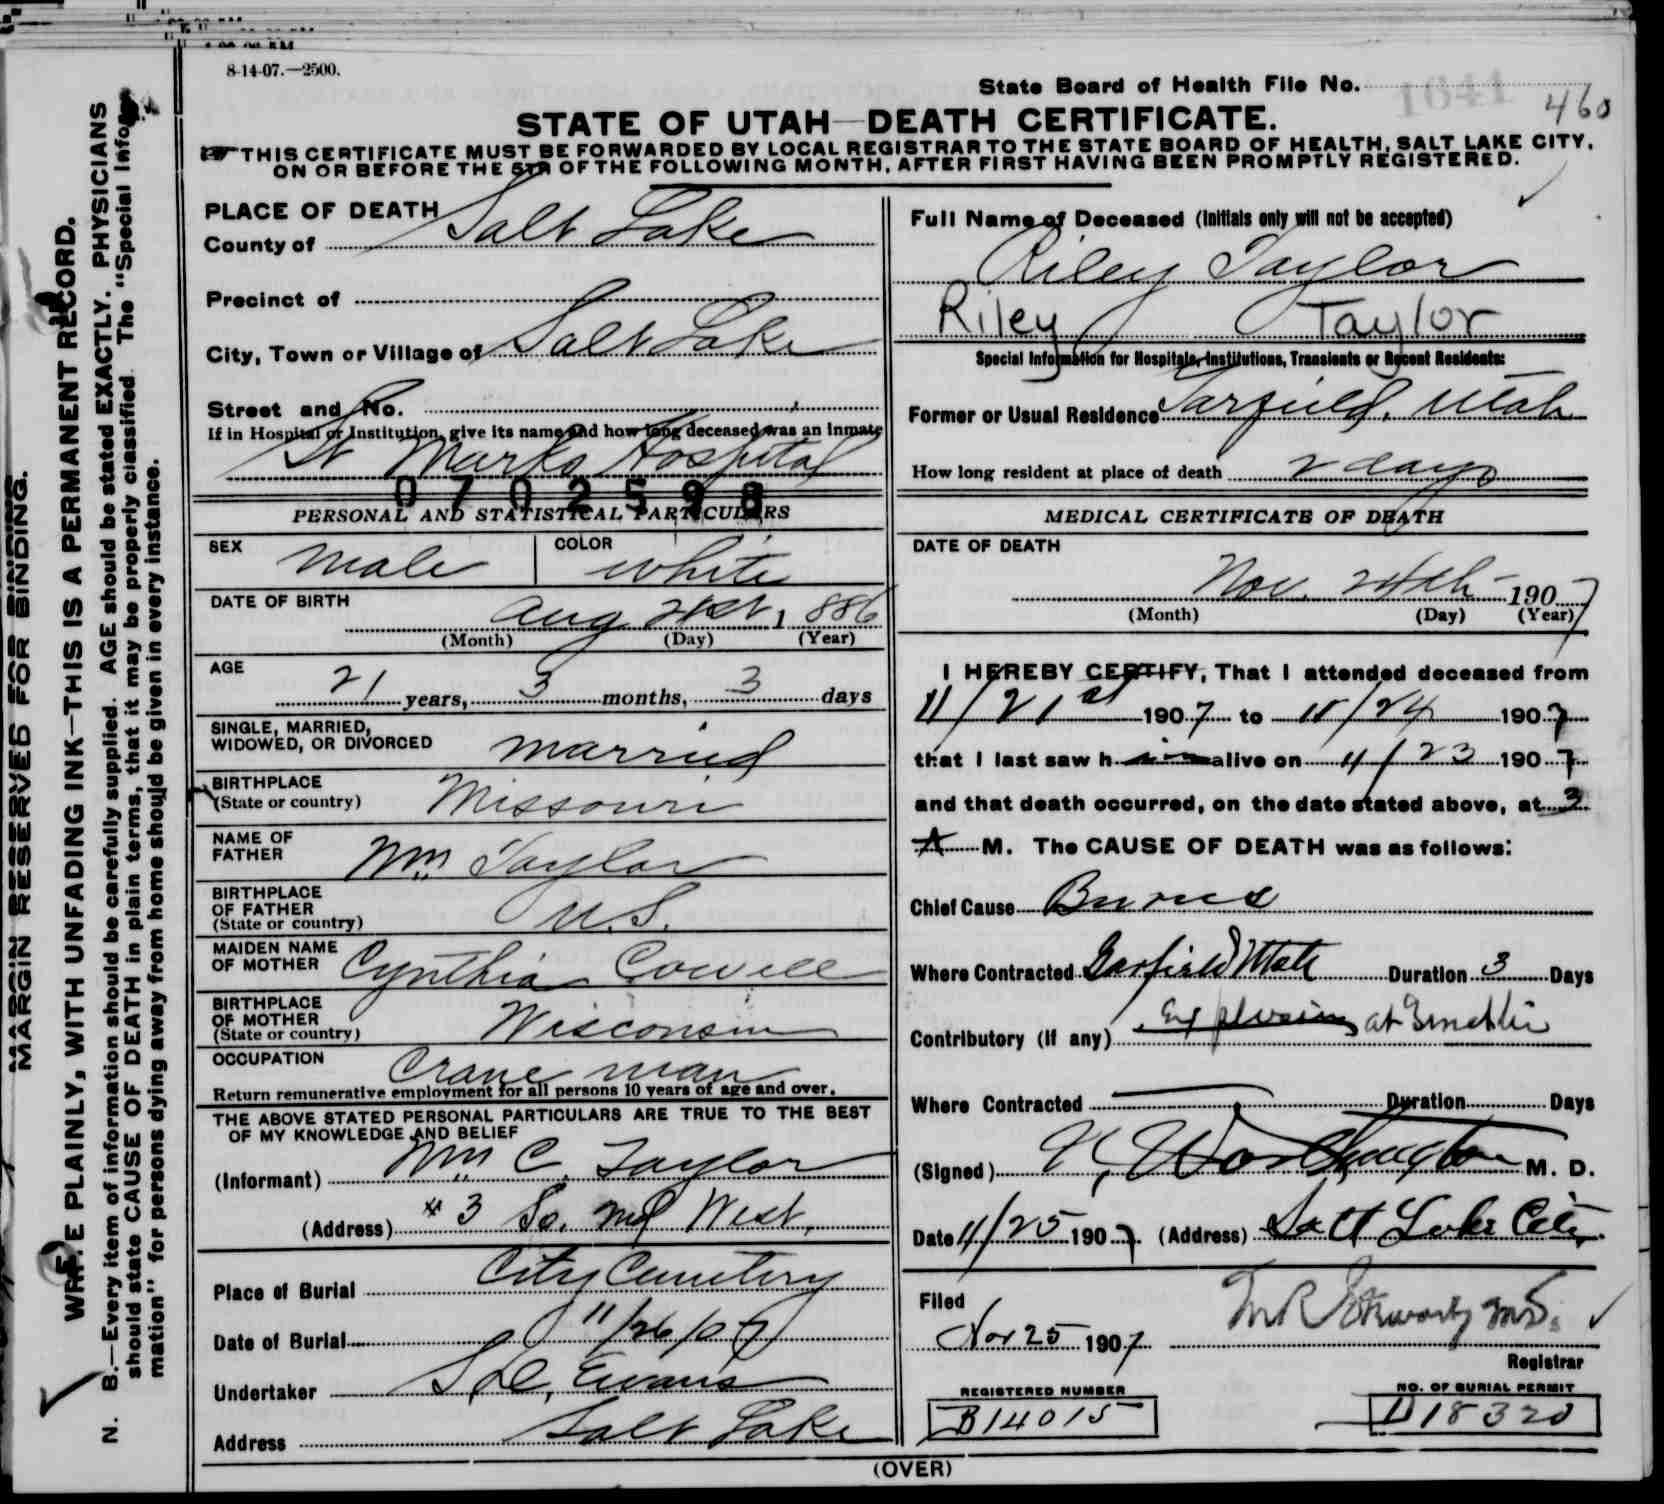 8-14-07.—2500.
State Board of Health File No. 1641
460
STATE OF UTAH—DEATH CERTIFICATE.
THIS CERTIFICATE MUST BE FORWARDED BY LOCAL REGISTRAR TO THE STATE BOARD OF HEALTH, SALT LAKE CITY,
ON OR BEFORE THE 5TH OF THE FOLLOWING MONTH, AFTER FIRST HAVING BEEN PROMPTLY REGISTERED.
MARGIN RESERVED FOR BINDING.
WRITE PLAINLY, WITH UNFADING INK—THIS IS A PERMANENT RECORD.
N. B.—Every item of information should be carefully supplied. AGE should be stated EXACTLY. PHYSICIANS
should state CAUSE OF DEATH in plain terms, that it may be properly classified. The "Special Infor-
mation" for persons dying away from home should be given in every instance.
PLACE OF DEATH
County of Salt Lake
Precinct of
City, Town or Village of Salt Lake
Street and No.
If in Hospital or Institution, give its name and how long deceased was an Inmate
St Marks Hospital
0702598
PERSONAL AND STATISTICAL PARTICULARS
SEX male COLOR white
DATE OF BIRTH Aug 21st, 1886
(Month) (Day) (Year)
AGE 21 years, 3 months, 3 days
SINGLE, MARRIED,
WIDOWED, OR DIVORCED married
BIRTHPLACE
(State or country) Missouri
NAME OF
FATHER Wm Taylor
BIRTHPLACE
OF FATHER U.S.
(State or country)
MAIDEN NAME
OF MOTHER Cynthia
BIRTHPLACE
OF MOTHER Wisconsin
(State or country)
OCCUPATION Crane man
Return remunerative employment for all persons 10 years of age and over.
THE ABOVE STATED PERSONAL PARTICULARS ARE TRUE TO THE BEST
OF MY KNOWLEDGE AND BELIEF
(Informant) Wm C. Taylor
(Address) #3 So. West.
Place of Burial City Cemetery
Date of Burial 11/26/07
Undertaker Evans
Address Salt Lake
Full Name of Deceased (Initials only will not be accepted)
Riley Taylor
Riley Taylor
Special Information for Hospitals, Institutions, Transients or Recent Residents:
Former or Usual Residence Garfield, Utah
How long resident at place of death 2 days
MEDICAL CERTIFICATE OF DEATH
DATE OF DEATH
Nov. 24th 1907
(Month) (Day) (Year)
I HEREBY CERTIFY, That I attended deceased from
11/21st 1907 to 11/24 1907
that I last saw him alive on 11/23 1907
and that death occurred, on the date stated above, at 3
A M. The CAUSE OF DEATH was as follows:
Chief Cause Burns
Where Contracted Garfield Utah Duration 3 Days
Contributory (if any) Explosion at Smelter
Where Contracted Duration Days
(Signed) Worthington M. D.
Date 11/25 1907. (Address) Salt Lake City
Filed
Nov 25 1907
Registrar
REGISTERED NUMBER
B14015
NO. OF BURIAL PERMIT
D18320
(OVER)